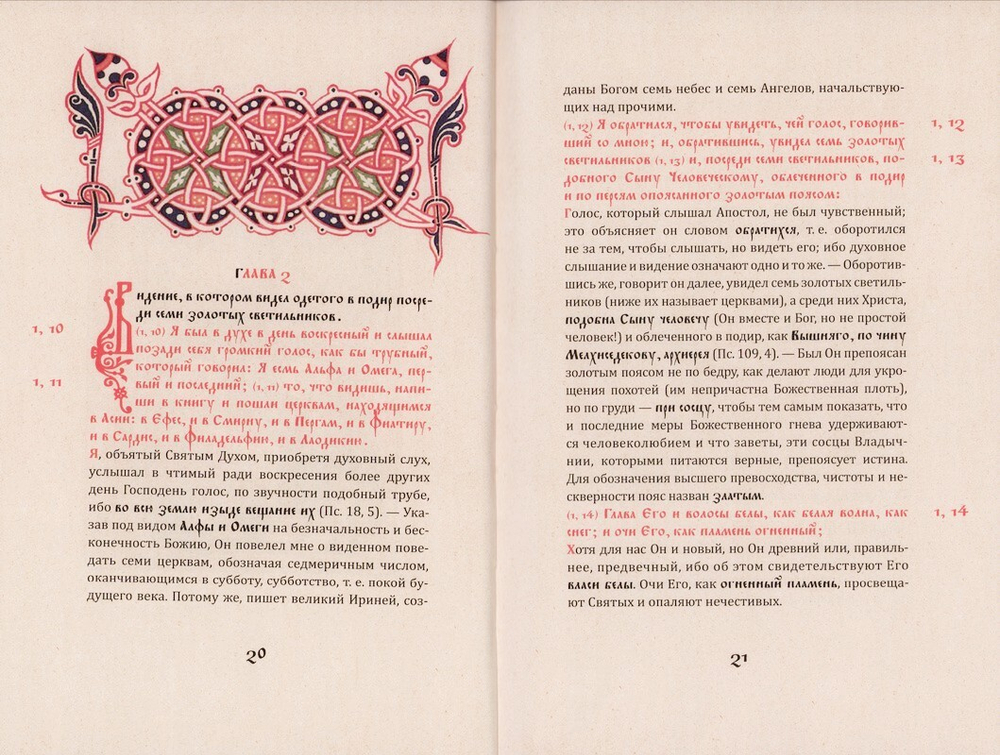 ГЛАВА 2
Видение, в котором видел одетого в подир посре-
ди семи золотых светильников.
1, 10
(1, 10) Я был в духе в день воскресный и слышал
позади себя громкий голос, как бы трубный,
который говорил: Я есмь Альфа и Омега, пер-
1, 11
вый и последний; (1, 11) то, что видишь, напи-
ши в книгу и пошли церквам, находящимся
в Асии: в Ефес, и в Смирну, и в Пергам, и в Фиатиру,
и в Сардис, и в Филадельфию, и в Лаодикию.
Я, объятый Святым Духом, приобретя духовный слух,
услышал в чтимый ради воскресения более других
день Господень голос, по звучности подобный трубе,
ибо во всю землю изыде вещание их (Пс. 18, 5). — Ука-
зав под видом Алфы и Омеги на безначальность и бес-
конечность Божию, Он повелел мне о виденном пове-
дать семи церквам, обозначая седмеричным числом,
оканчивающимся в субботу, субботство, т. е. покой бу-
дущего века. Потому же, пишет великий Ириней, соз-
20
даны Богом семь небес и семь Ангелов, начальствую-
щих над прочими.
(1, 12) Я обратился, чтобы увидеть, чей голос, говорив-
1, 12
ший со мною; и, обратившись, увидел семь золотых
светильников (1, 13) и, посреди семи светильников, по-
1, 13
добного Сыну Человеческому, облеченного в подир
и по персям опоясанного золотым поясом:
Голос, который слышал Апостол, не был чувственный;
это объясняет он словом обратихся, т. е. оборотился
не за тем, чтобы слышать, но видеть его; ибо духовное
слышание и видение означают одно и то же. — Оборотив-
шись же, говорит он далее, увидел семь золотых светиль-
ников (ниже их называет церквами), а среди них Христа,
подобна Сыну человечу (Он вместе и Бог, но не простой
человек!) и облеченного в подир, как Вышняго, по чину
Мелхиседекову, архиерея (Пс. 109, 4). — Был Он препоясан
золотым поясом не по бедру, как делают люди для укро-
щения похотей (им непричастна Божественная плоть),
но по груди — при сосцу, чтобы тем самым показать, что
и последние меры Божественного гнева удерживают-
ся человеколюбием и что заветы, эти сосцы Владыч-
нии, которыми питаются верные, препоясует истина.
Для обозначения высшего превосходства, чистоты и не-
скверности пояс назван златым.
(1, 14) Глава Его и волосы белы, как белая волна, как
1, 14
снег; и очи Его, как пламень огненный;
Хотя для нас Он и новый, но Он древний или, правиль-
нее, предвечный, ибо об этом свидетельствуют Его
власи белы. Очи Его, как огненный пламень, просвеща-
ют Святых и опаляют нечестивых.
21